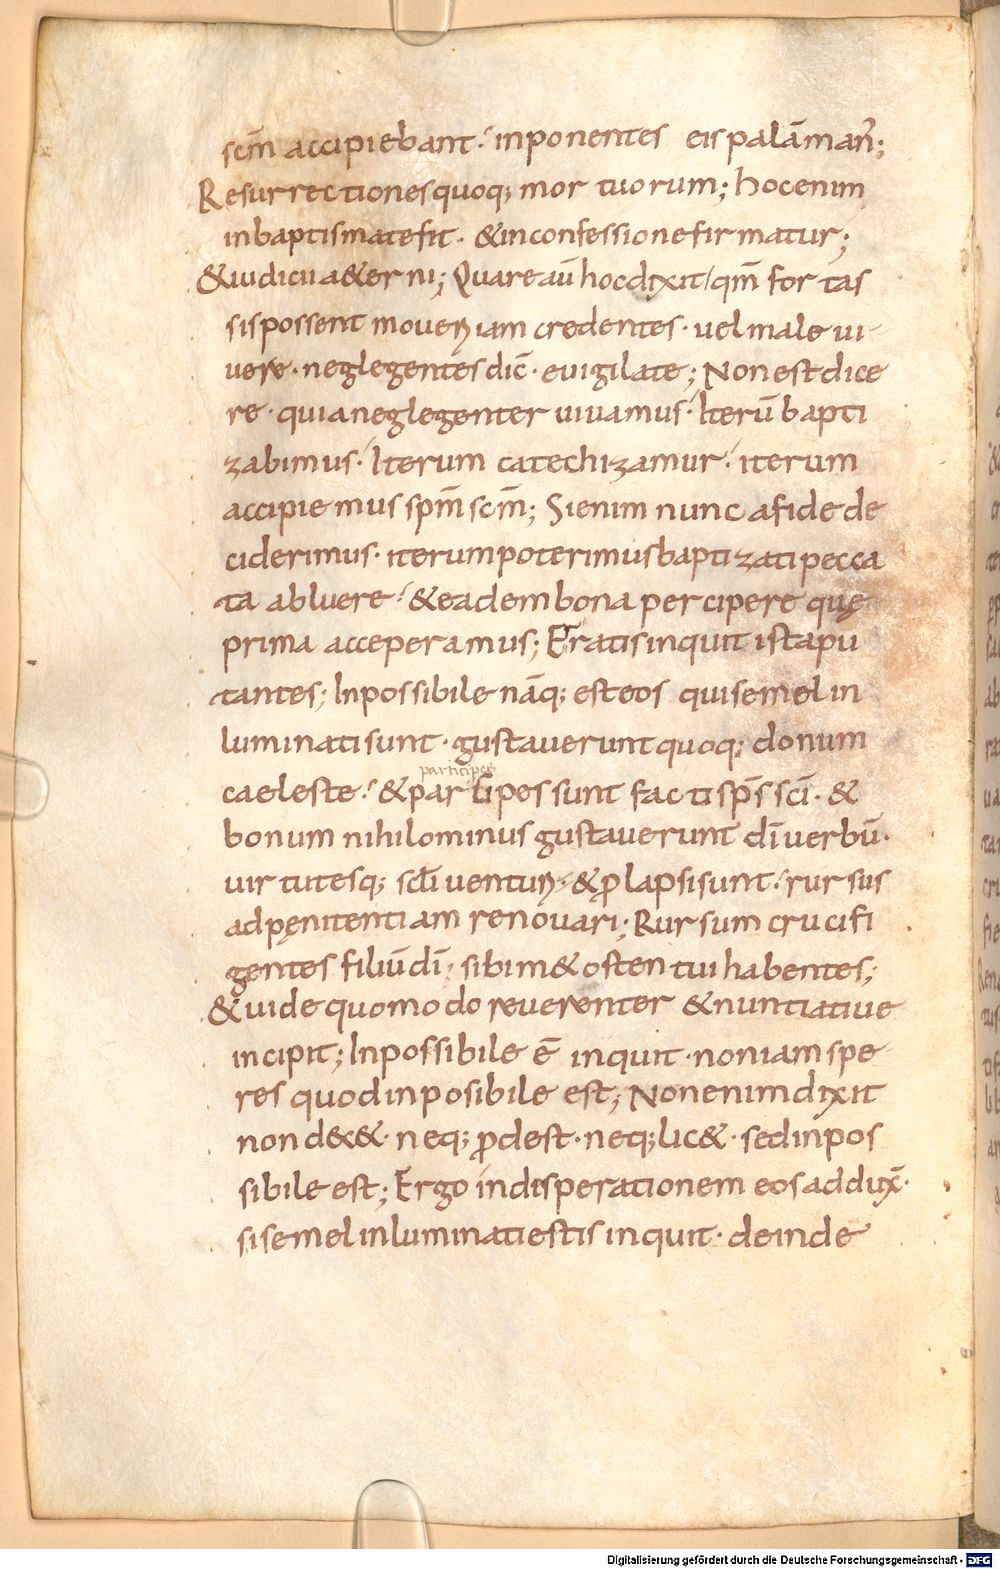 scm̄ accipiebant·́ inponentes eis palā man̄;
Resurrectiones quoq; mortuorum; hoc enim
in baptismate fit· & in confessione firmatur;
& iudicii a&erni; Quare aū hoc dixit / qm̄ fortas
sis possent moueri iam credentes· uel male ui
uere· neglegentes dic̄· euigilate; Non est dice
re· quia neglegenter uiuamus·́ Iterū bapti
zabimus·́ Iterum catechizamur·́ iterum
accipiemus spm̄ scm̄; Si enim nunc a fide de
ciderimus· iterum poterimus baptizati pecca
ta abluere·́ & eadem bona percipere quę
prima acceperamus; Erratis inquit ista pu
tantes; Inpossibile nāq; est eos qui semel in
luminati sunt· gustauerunt quoq; donum
participes
caeleste·́ & participes sunt facti sp̄s sc̄i· &
bonum nihilominus gustauerunt dī uerbū·
uirtutesq; sc̄li uenturi·́ & ꝓlapsi sunt·́ rursus
ad pęnitentiam renouari; Rursum crucifi
gentes filiū dī· sibim& ostentui habentes;
& uide quomodo reuerenter & nuntiatiue
incipit; Inpossibile ē inquit· non iam spe
res quod inposibile est; Non enim dixit
non dec&· neq; ꝓdest· neq; lic&· sed inpos
sibile est; Ergo in disperationem eos addux̄·
si semel inluminati estis inquit· deinde
Digitalisierung gefördert durch die Deutsche Forschungsgemeinschaft - DFG